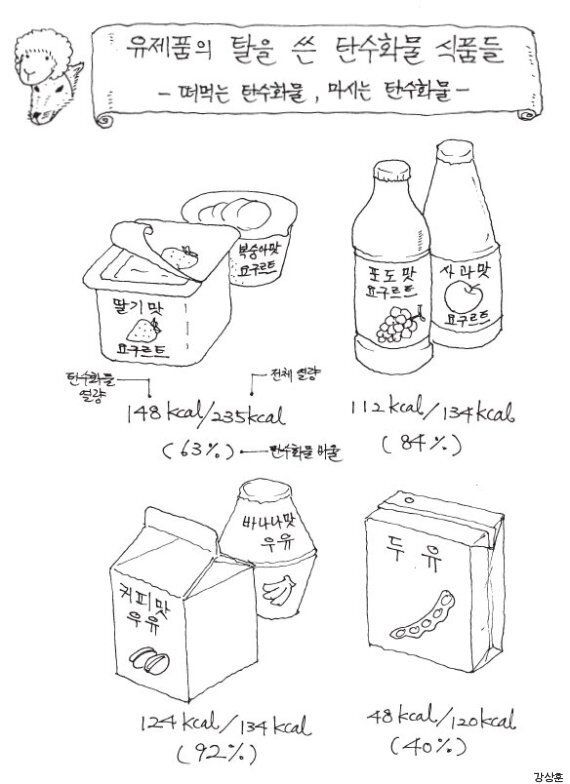 유제품의 탈을 쓴 탄수화물 식품들
- 떠먹는 탄수화물, 마시는 탄수화물 -
복숭아맛
요구르트
딸기맛
요구르트
포도맛
요구르트
사과맛
요구르트
탄수화물
열량
전체 열량
148 kcal/235kcal
(63%)
탄수화물 비율
112 kcal/134kcal
(84%)
바나나맛
우유
커피맛
우유
두유
124 kcal/134 kcal
(92%)
48 kcal/120kcal
(40%)
강상훈